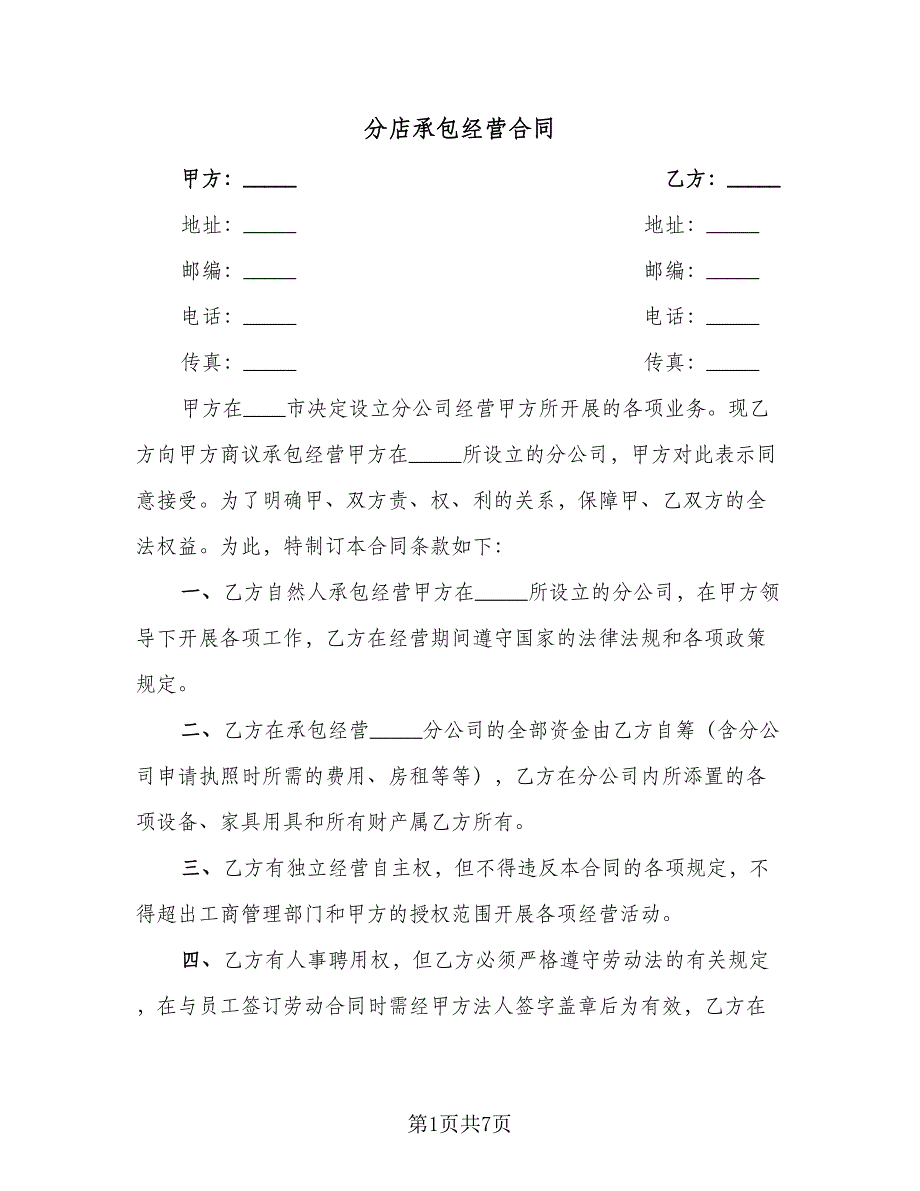 分店承包经营合同
甲方：_____ 乙方：_____
地址：_____ 地址：_____
邮编：_____ 邮编：_____
电话：_____ 电话：_____
传真：_____ 传真：_____
甲方在____市决定设立分公司经营甲方所开展的各项业务。现乙
方向甲方商议承包经营甲方在_____所设立的分公司，甲方对此表示同
意接受。为了明确甲、双方责、权、利的关系，保障甲、乙双方的全
法权益。为此，特制订本合同条款如下：
一、乙方自然人承包经营甲方在_____所设立的分公司，在甲方领
导下开展各项工作，乙方在经营期间遵守国家的法律法规和各项政策
规定。
二、乙方在承包经营_____分公司的全部资金由乙方自筹（含分公
司申请执照时所需的费用、房租等等），乙方在分公司内所添置的各
项设备、家具用具和所有财产属乙方所有。
三、乙方有独立经营自主权，但不得违反本合同的各项规定，不
得超出工商管理部门和甲方的授权范围开展各项经营活动。
四、乙方有人事聘用权，但乙方必须严格遵守劳动法的有关规定
，在与员工签订劳动合同时需经甲方法人签字盖章后为有效，乙方在
第1页共7页